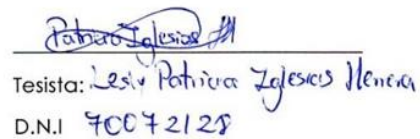 Patricia Iglesias H
Tesista: Lesly Patricia Iglesias Herrera
D.N.I 70072128